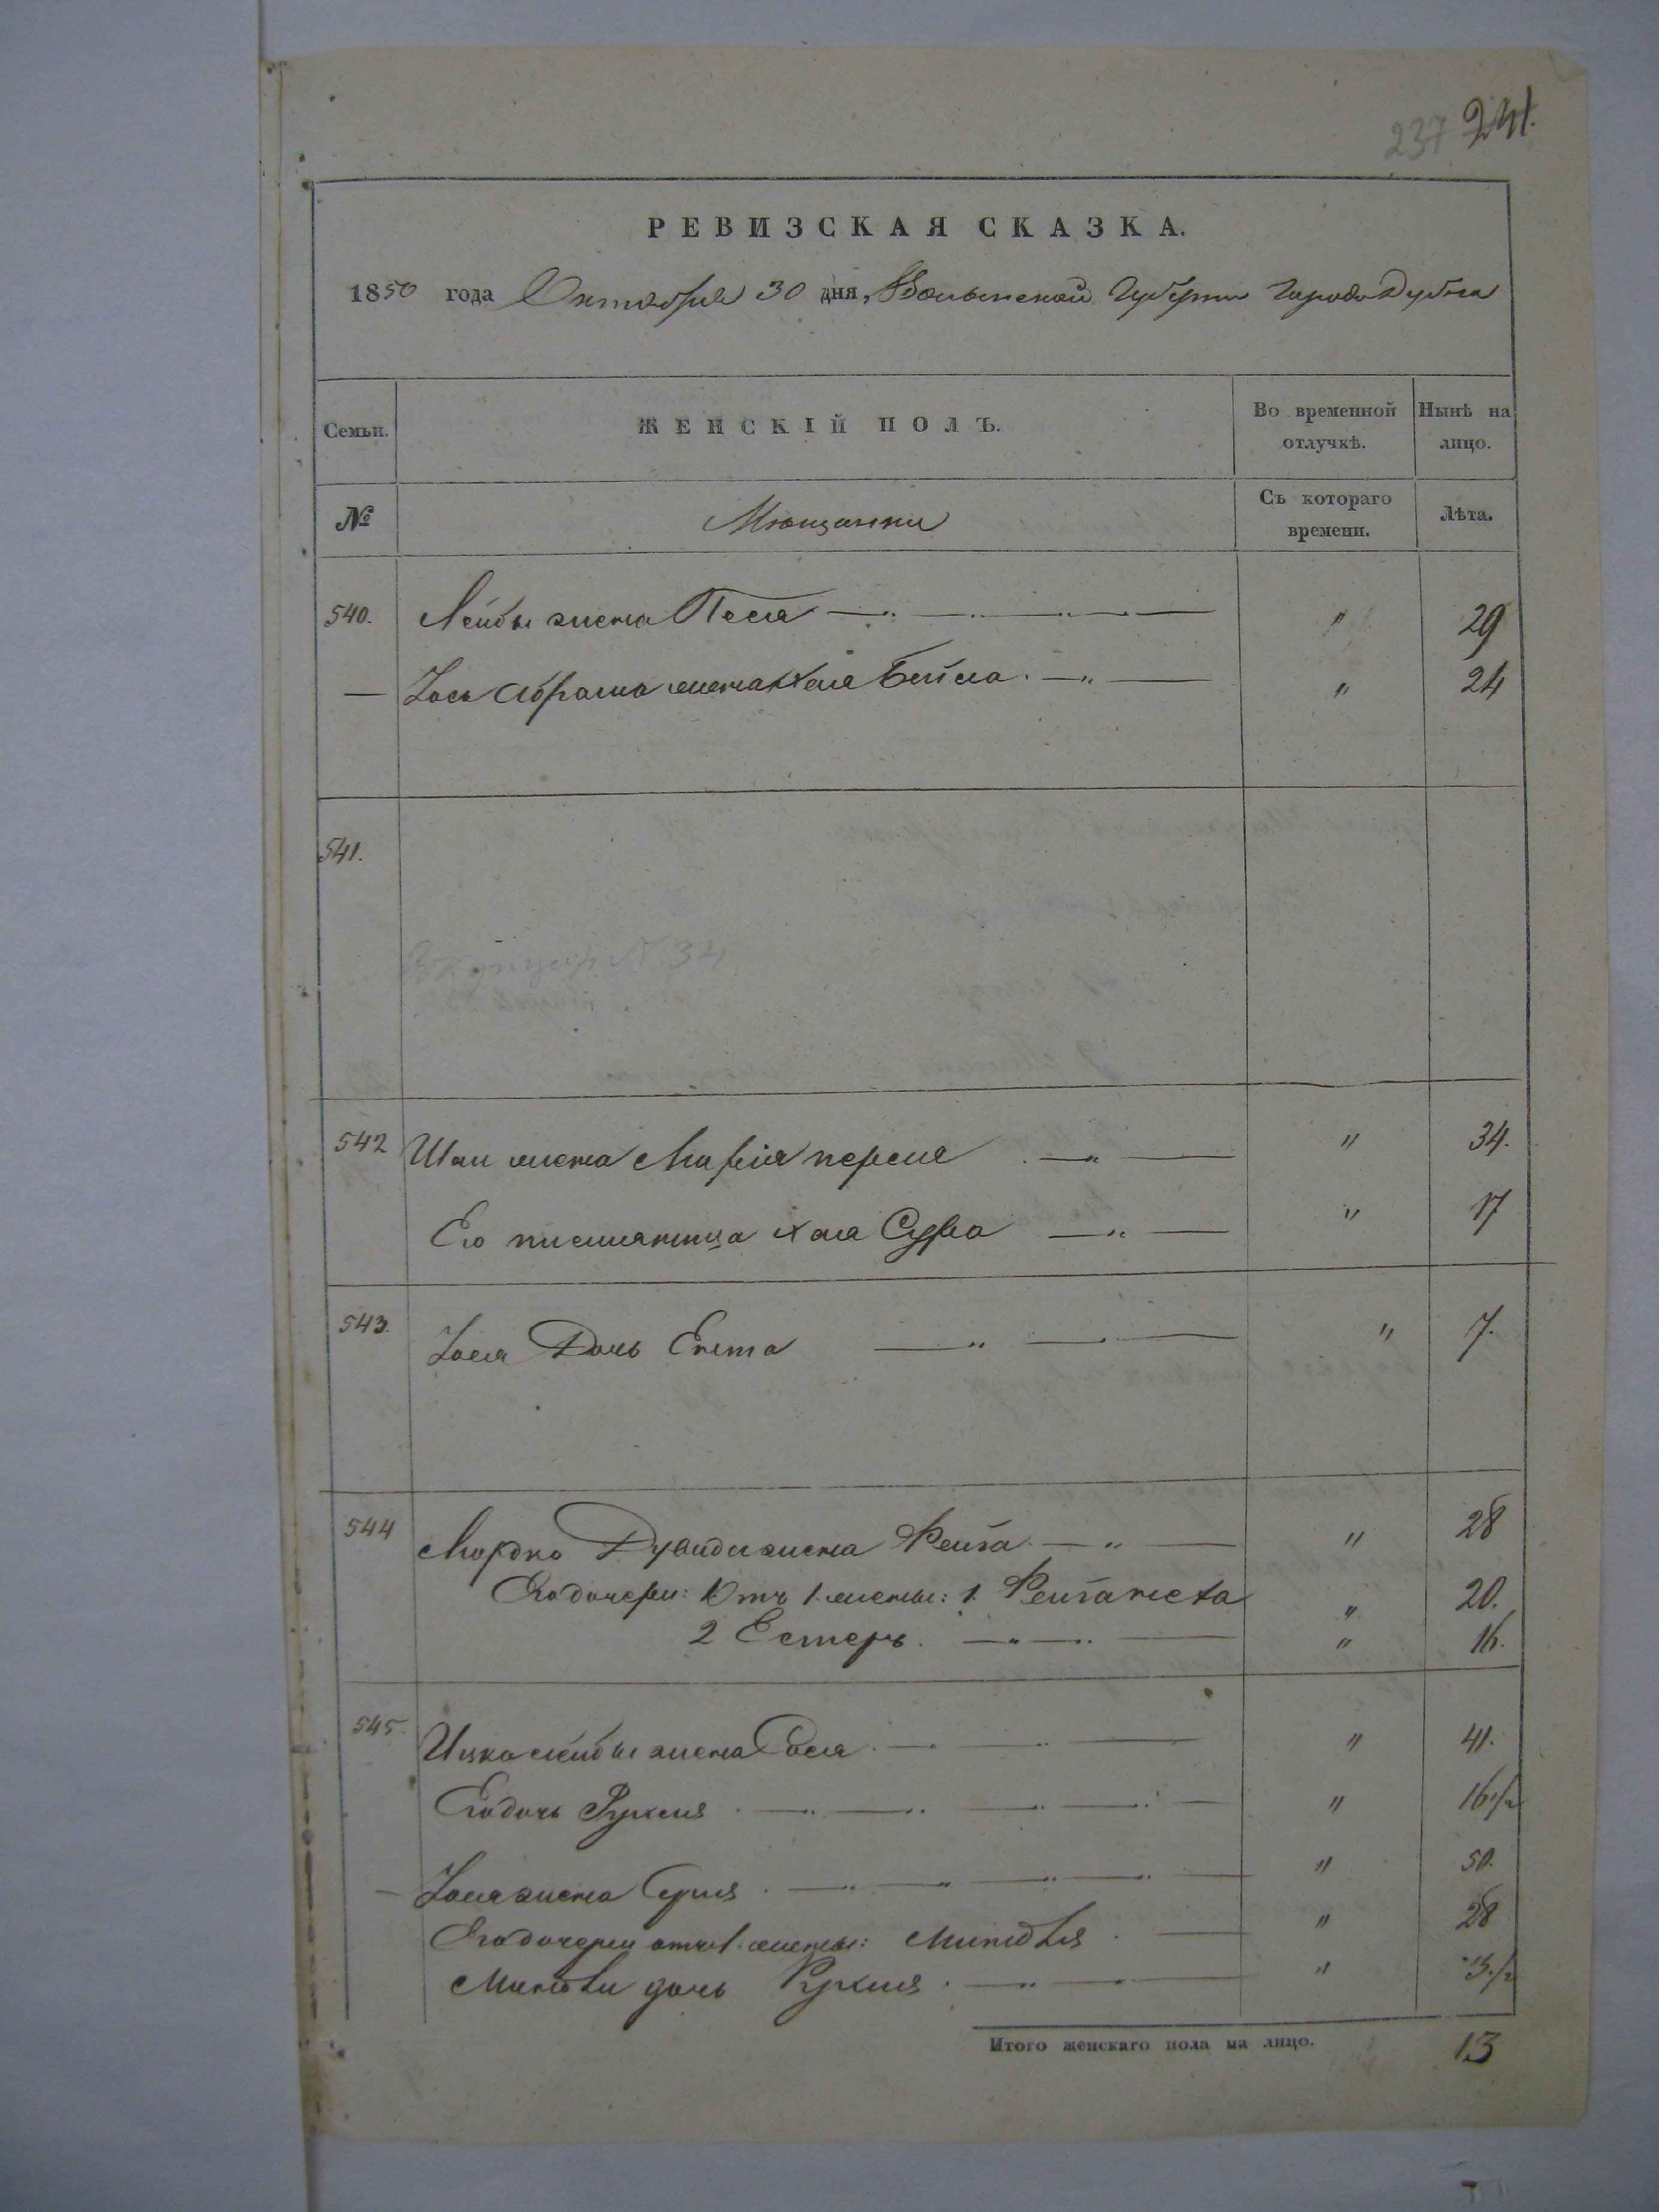 237 241.
РЕВИЗСКАЯ СКАЗКА.
1850 года Октября 30 дня, Волынской Губерни города Дубна
Семьи. ЖЕНСКІЙ ПОЛЪ. Во временной отлучкѣ. Нынѣ на лицо.
№ Мѣщанки Съ котораго времени. Лѣта.
540. Лейбы жена Песя " 29
— Іось Абрама жена Хая Бейла " 24
541.
В купцахъ N. 34
542 Шаи жена Марія перея " 34.
Его племянница Хая Сура " 17
543. Іося Дочь Ента " 7.
544 Мордко Дувида жена Фейга " 28
Его дочери: Отъ 1. жены: 1. Фейга " 20.
2 Естеръ " 16.
545. Ицко лейбы жена Рося " 41.
Его дочь Рухля " 16 1/2
— Іося жена Суля " 50.
Его дочери отъ 1. жены: Миндля " 28
Миндли дочь Рухля "
Итого женскаго пола на лицо. 13